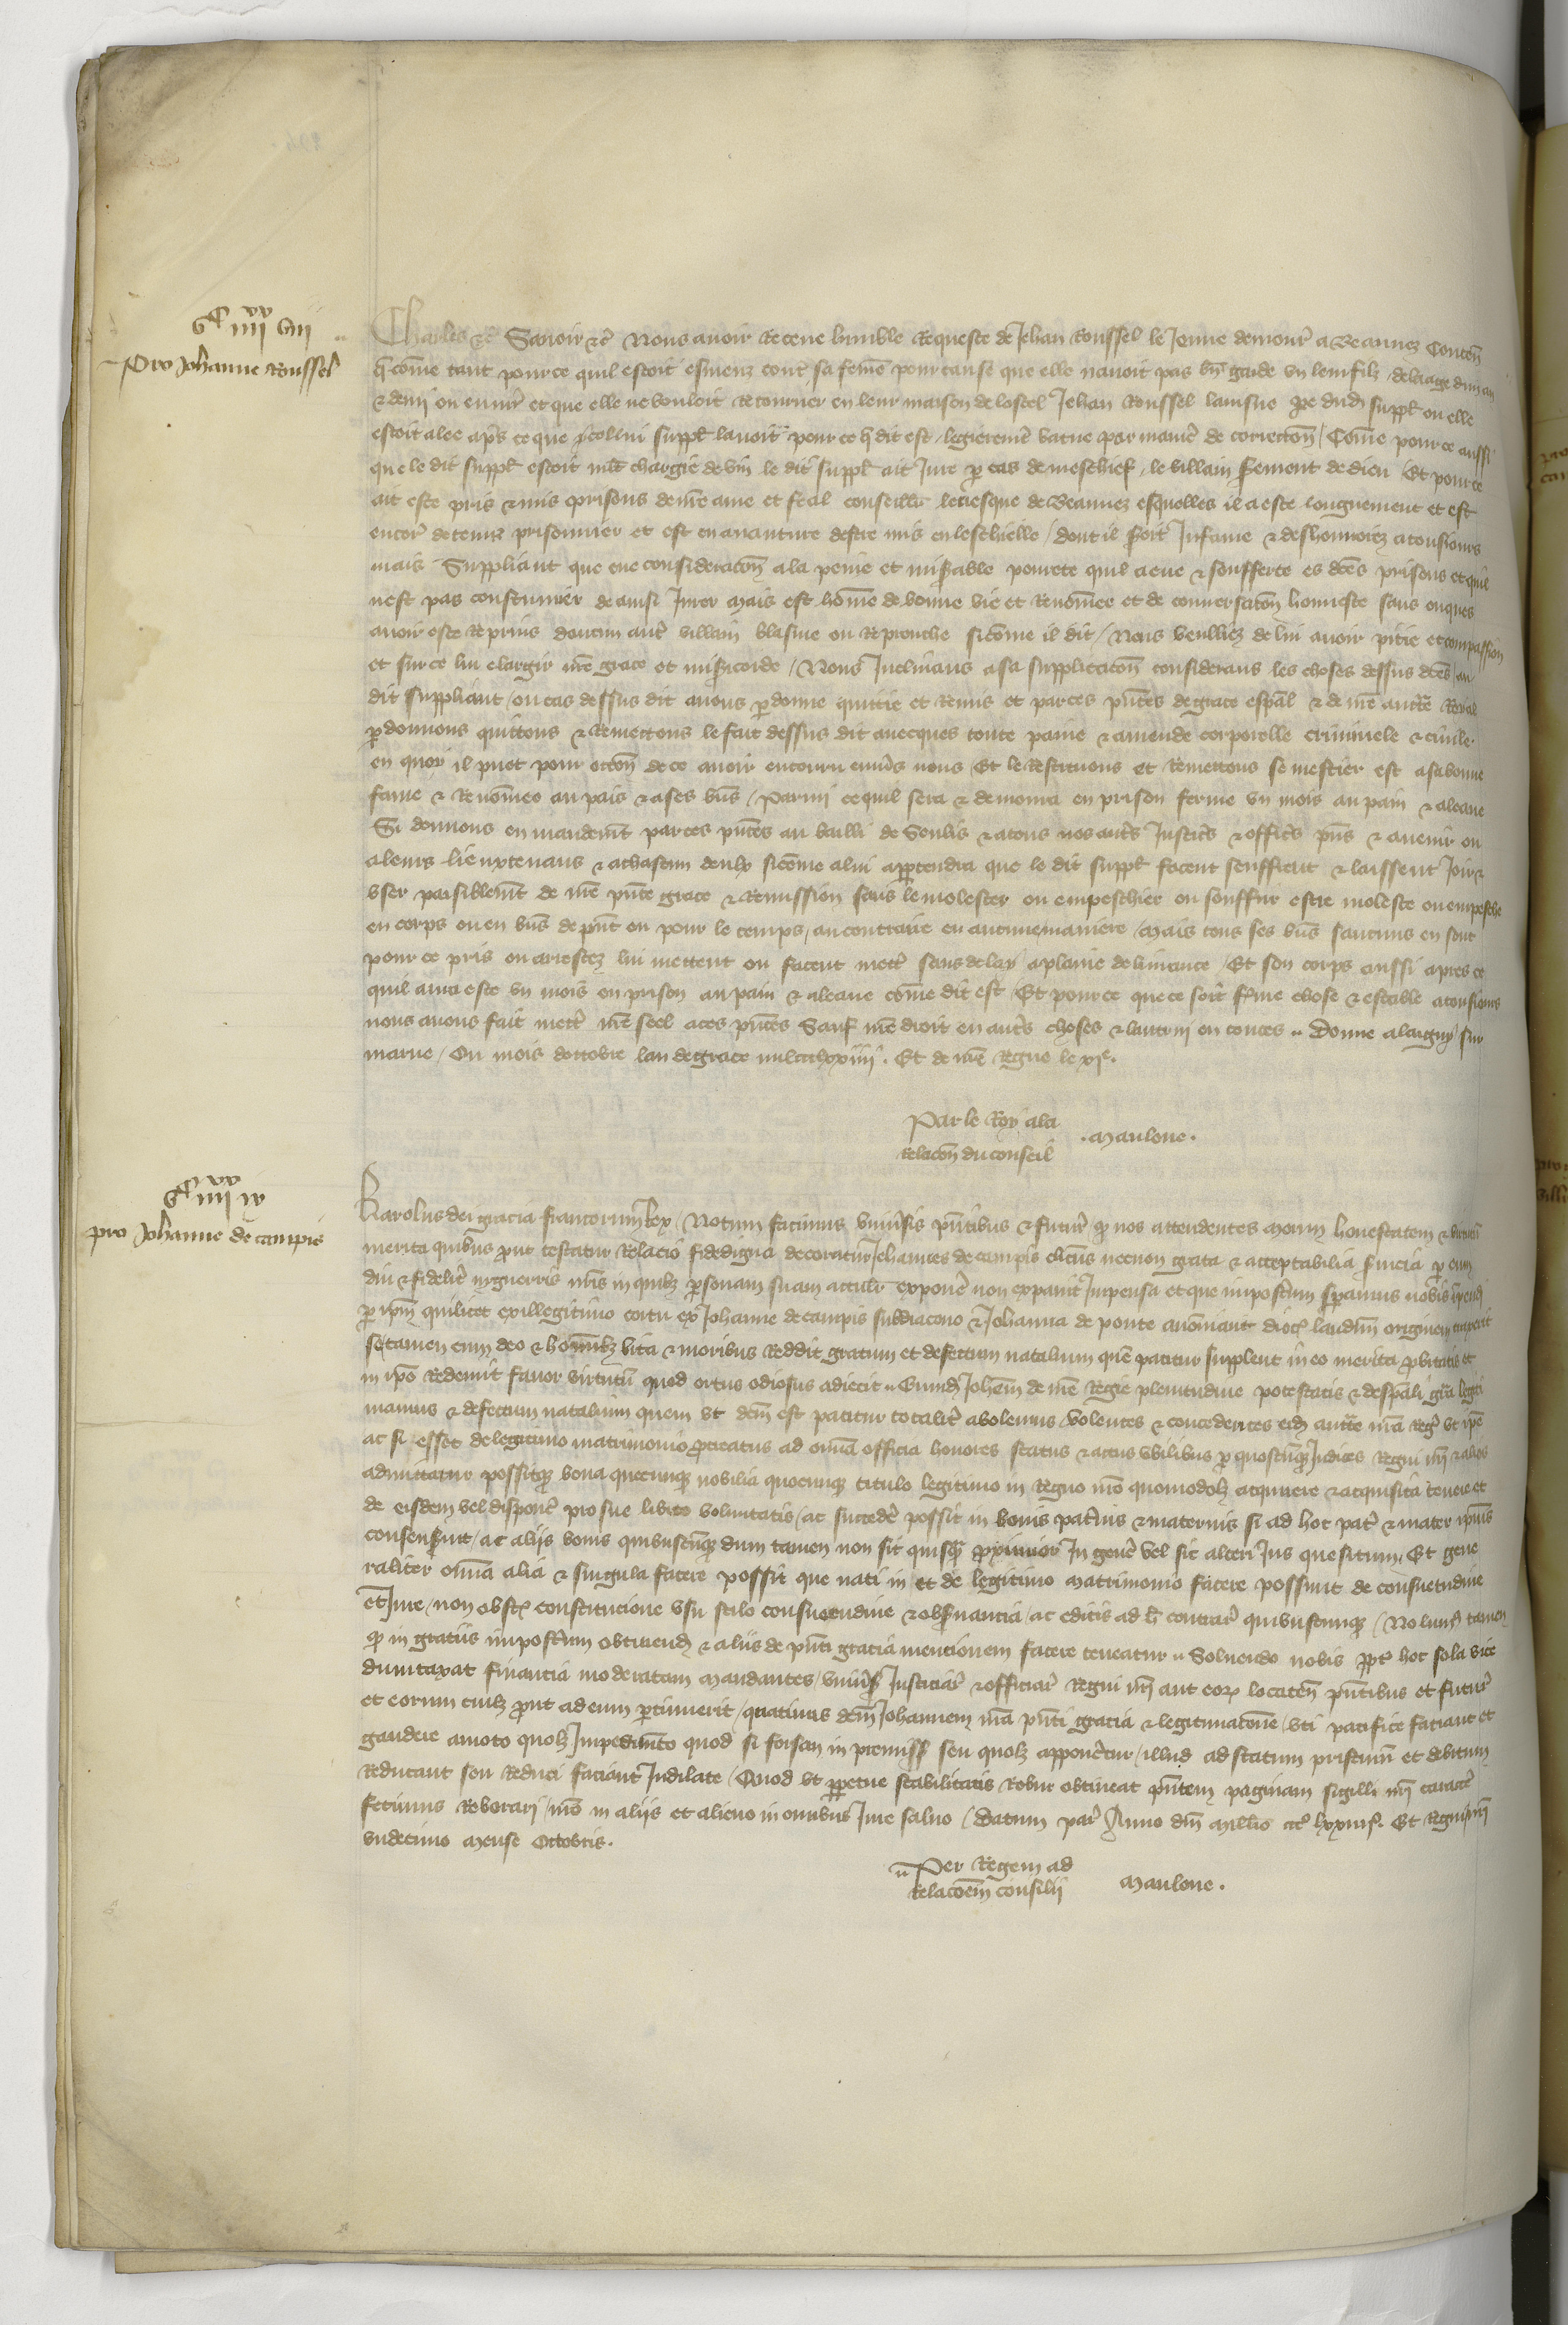 vᶜ iiiiˣˣ viii
Pro Johanne Roussel
Charles &c̃ Savoir &c̃ Nous avoir receue lumble Requeste de Jehan Roussel le Jenne demour̃ a Beauvez Conten̄
q̃ com̃e tant pource quil estoit esmeuz cont̃ sa fem̃e pour cause que elle navoit pas bn̄ garde un leur filz de laage dun an
& demi ou envir̃ et que elle ne vouloit Retourner en leur maison de lostel Jehan Roussel lainsne pe dud̃ suppl̃ ou elle
estoit alee ap̃s ce que icellui suppl̃ lavoit pour ce q̃ dit est legierem̃t batue par manie᷒ de correction̄ / Com̃e pour ce aussi
que le dit suppl̃ estoit ml̃t chargie de vin le dit suppl̃ ait Jure p cas de meschief le villain s̃ement de dieu Et pour ce
ait este pris & mis es prisons de nr̃e ame et feal conseill̃r levesque de Beauvez esquelles il a este longuement et est
encor̃ detenuz prisonnier et est en avanture destre mis en leschielle / dont il s̃oit Infame & deshonnorez a tousiours
mais Suppliant que eue consideracion̄ a la peine et mis̃able povrete quil a eue & soufferte es dc̃es prisons et quil
nest pas coustumier de ainsi Jurer Mais est hom̃e de bonne vie et Renom̃ee et de conversacion̄ honneste sans onques
avoir este Reprins daucun aut̃ villain blasme ou Reprouche sicom̃e il dit / Nous veulliez de lui avoir pitie et compassion
et sur ce lui elargir nr̃e grace et mis̃icorde / Nous Inclinans a sa supplicacion̄ considerans les choses dessus dc̃es / au
dit suppliant / ou cas dessus dit avons pdonne quittie et Remis et par ces pñtes de grace esp̃al & de nr̃e auct̃e Royal
pdonnons quittons & Remettons le fait dessus dit avecques toute paine & amende corporelle criminele & civile
en quoy il puet pour occ̃on de ce avoir encouru enṽs nous Et le Restituons et Remettons se mestier est a sa bonne
fame & Renom̃ee au pais & a ses bn̄s / Parmi ce quil sera & demorra en prison ferme un mois au pain & a leaue
Si donnons en mandem̃t par ces pñtes au bailli de Senlis & a tous nos aut̃s Justic̃s & offic̃s pñs & avenir ou
a leurs lieuxtenans & a chascun deulx sicom̃e a lui appartendra que le dit suppl̃ facent seuffrent & laissent Joir &
user paisiblem̃t de nr̃e pñte grace & Remission sans le molester ou empeschier ou souffrir estre moleste ou empesche
en corps ou en bn̄s de pñt ou pour le temps / au contraire en aucune maniere / Mais tous ses bn̄s saucuns en sont
pour ce pris ou arrestez lui mettent ou facent mett̃ sans delay a plaine delivrance / Et son corps aussi apres ce
quil aura este un mois en prison au pain & a leaue com̃e dit est / Et pour ce que ce soit f̃me chose & estable a tousiours
nous avons fait mett̃ nr̃e seel a ces pñtes Sauf nr̃e droit en aut̃s choses & lautrui en toutes Donne a laigny sur
marne / Ou mois doctobre lan de grace mil ccc lxxiiii . Et de nr̃e Regne le xiᵉ .
Par le Roy a la
Relacion̄ du conseil . Maulone .
vᶜ iiiiˣˣ ix
pro Johanne de campis
Karolus dei gracia francorum Rex / Notum facimus uniṽsis pñtibus & futur̃ q̃ nos attendentes morum honestatem & virtutũ
merita quibus prout testatur Relacio fidedigna decoratur Johannes de campis clicus necnon grata & acceptabilia s̃vicia p eum
diu & fidelit̃ in guerris nr̃is in quibz psonam suam actualit̃ expone᷒ non expavit Impensa et que impost̃um sp̃amus nobis Impendi
p ipm̃ qui licet ex illegitimo coitu ex Johanne de campis subdiacono & Johanna de ponte dioc̃ laudun̄ originem traxerit
se tamen cum deo & hom̃ibz vita & moribus Reddit gratum et defectum natalium quẽ patitur supplent in eo merita probitatis et
in ip̃o Redemit favor virtutũ quod ortus odiosus adiecit Eund̃ Joh̃em de nr̃e Regie plenitudine potestatis & de sp̃ali gr̃a legiti
mamus & defectum natalium quem ut dc̃m est patitur totalit̃ abolemus / volentes & concedentes eid̃ auct̃e nr̃a Reg̃ ut ip̃e
ac si esset de legitimo matrimonio procreatus ad om̃ia officia honores status & actus Civilibus p quoscũqz Judices Regni nr̃i & alios
admittatur possitqz bona quecunqz nobilia quocunqz titulo legitimo in Regno nr̃o quomodolz acquirere & acquisita tenere et
de eisdem vel dispone᷒ pro sue libito voluntatis / ac succede᷒ possit in bonis pat̃nis & maternis si ad hoc pat̃ & mater ipius
consens̃int / ac aliis bonis quibuscũqz dum tamen non sit quisq̃ proximior In gene᷒ vel sit alteri Jus quesitum Et gene
raliter om̃ia alia & singula facere possit que nati in et de legitimo matrimonio facere possunt de consuetudine
et Jure / non obstan̄ constitucione usu stilo consuetudine & obs̃vancia / ac editis ad h̃ contrar̃ quibuscunqz / Nolum̃ tamen
q̃ in graciis impost̃um obtinend̃ & aliis de pñti gracia mentionem facere teneatur Solvendo nobis ppt̃ hoc sola vice
dumtaxat financia moderatam Mandantes / uniṽs̃ Justiciar̃ & officiar̃ Regni nr̃i aut eorũ locaten̄ pñtibus et futur̃
et eorum cuilz prout ad eum ptinuerit / quatinus dc̃m Johannem nr̃a pñti gracia & legitimacione / uti pacifice faciant et
gaudere amoto quolz Impedim̃to quod si forsan in premiss̃ seu quolz appone᷒tur / illud ad statum pristinũ et debitum
Reducant seu Reduci faciant Indilate / Quod ut ppetue stabilitatis Robur obtineat pñtem paginam sigilli nr̃i caract̃e
fecimus Roborari / nr̃o in aliis et alieno in omibus Jure salvo / Datum par̃ Anno dñi Mill̃o ccc̃ lxxiiii̊ . Et Regni nr̃i
undecimo Mense Octobris .
Per Regem ad
Relacoem̃ consilii Maulone .